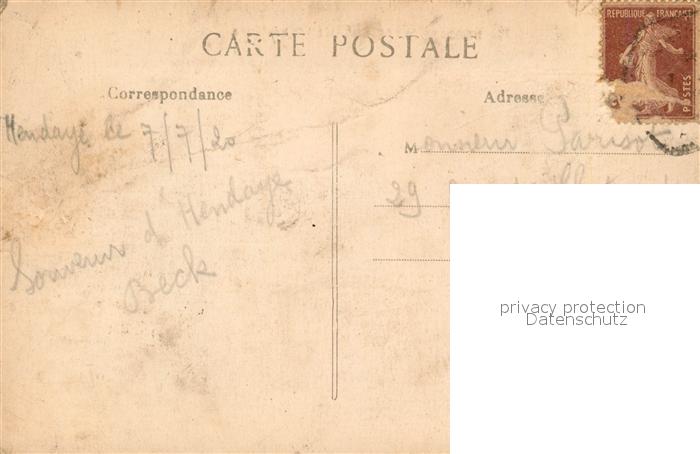 CARTE POSTALE
RÉPUBLIQUE FRANÇAISE
POSTES
Correspondance
Adresse
Hendaye le 7/7/20
Monsieur Parisot
29
Souvenir d'Hendaye
Beck
privacy protection
Datenschutz